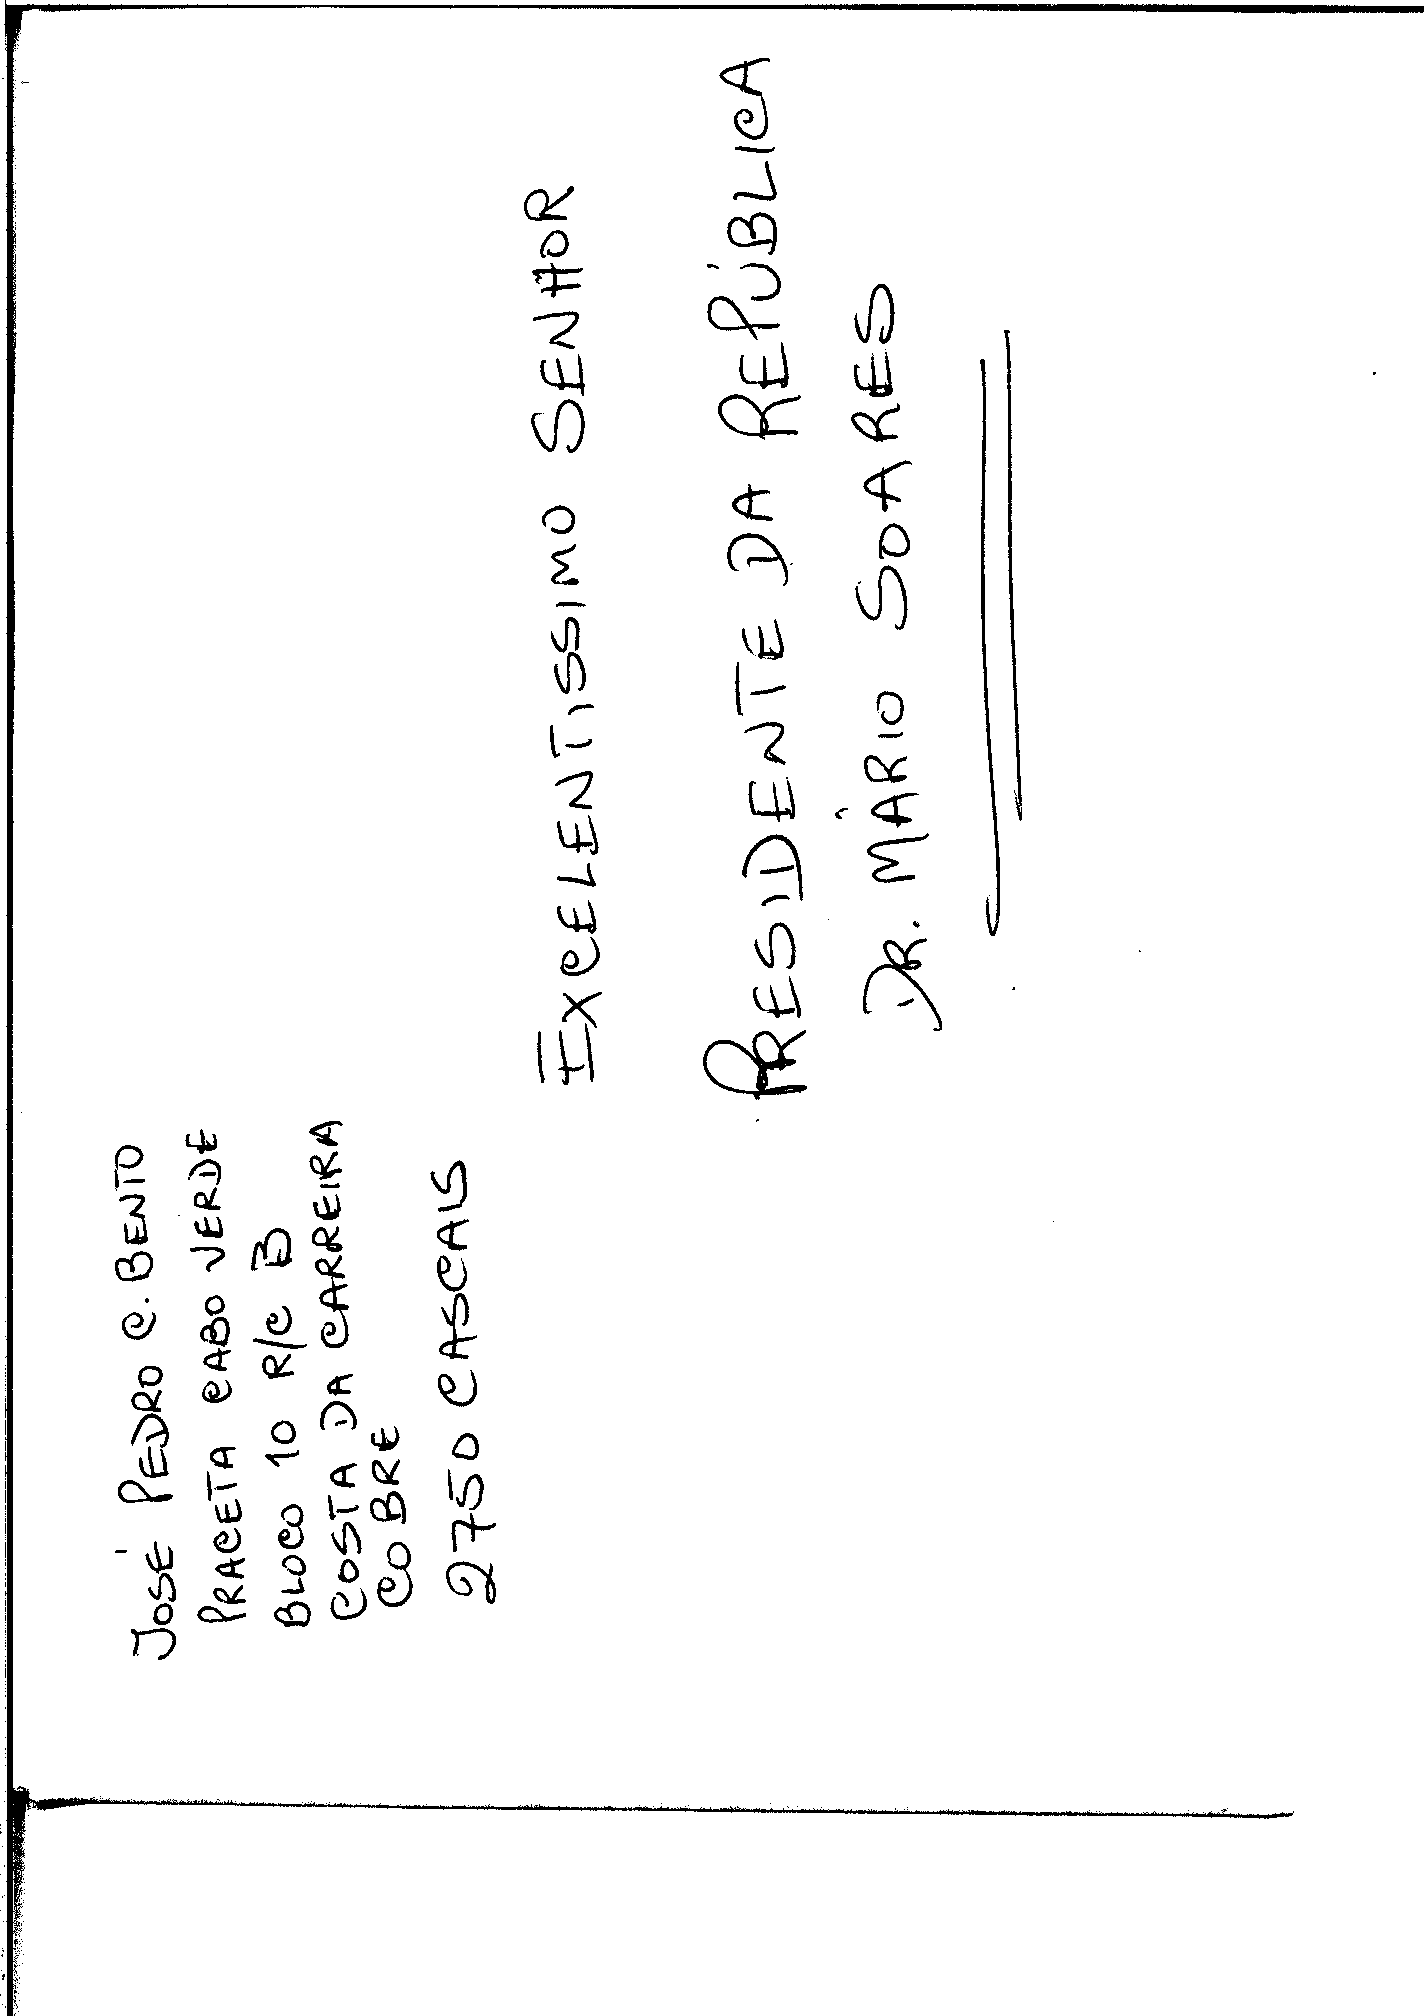 JOSÉ PEDRO C. BENTO
PRACETA CABO VERDE
BLOCO 10 R/C B
COSTA DA CARREIRA
COBRE
2750 CASCAIS
EXCELENTISSIMO SENHOR
PRESIDENTE DA REPÚBLICA
DR. MÁRIO SOARES